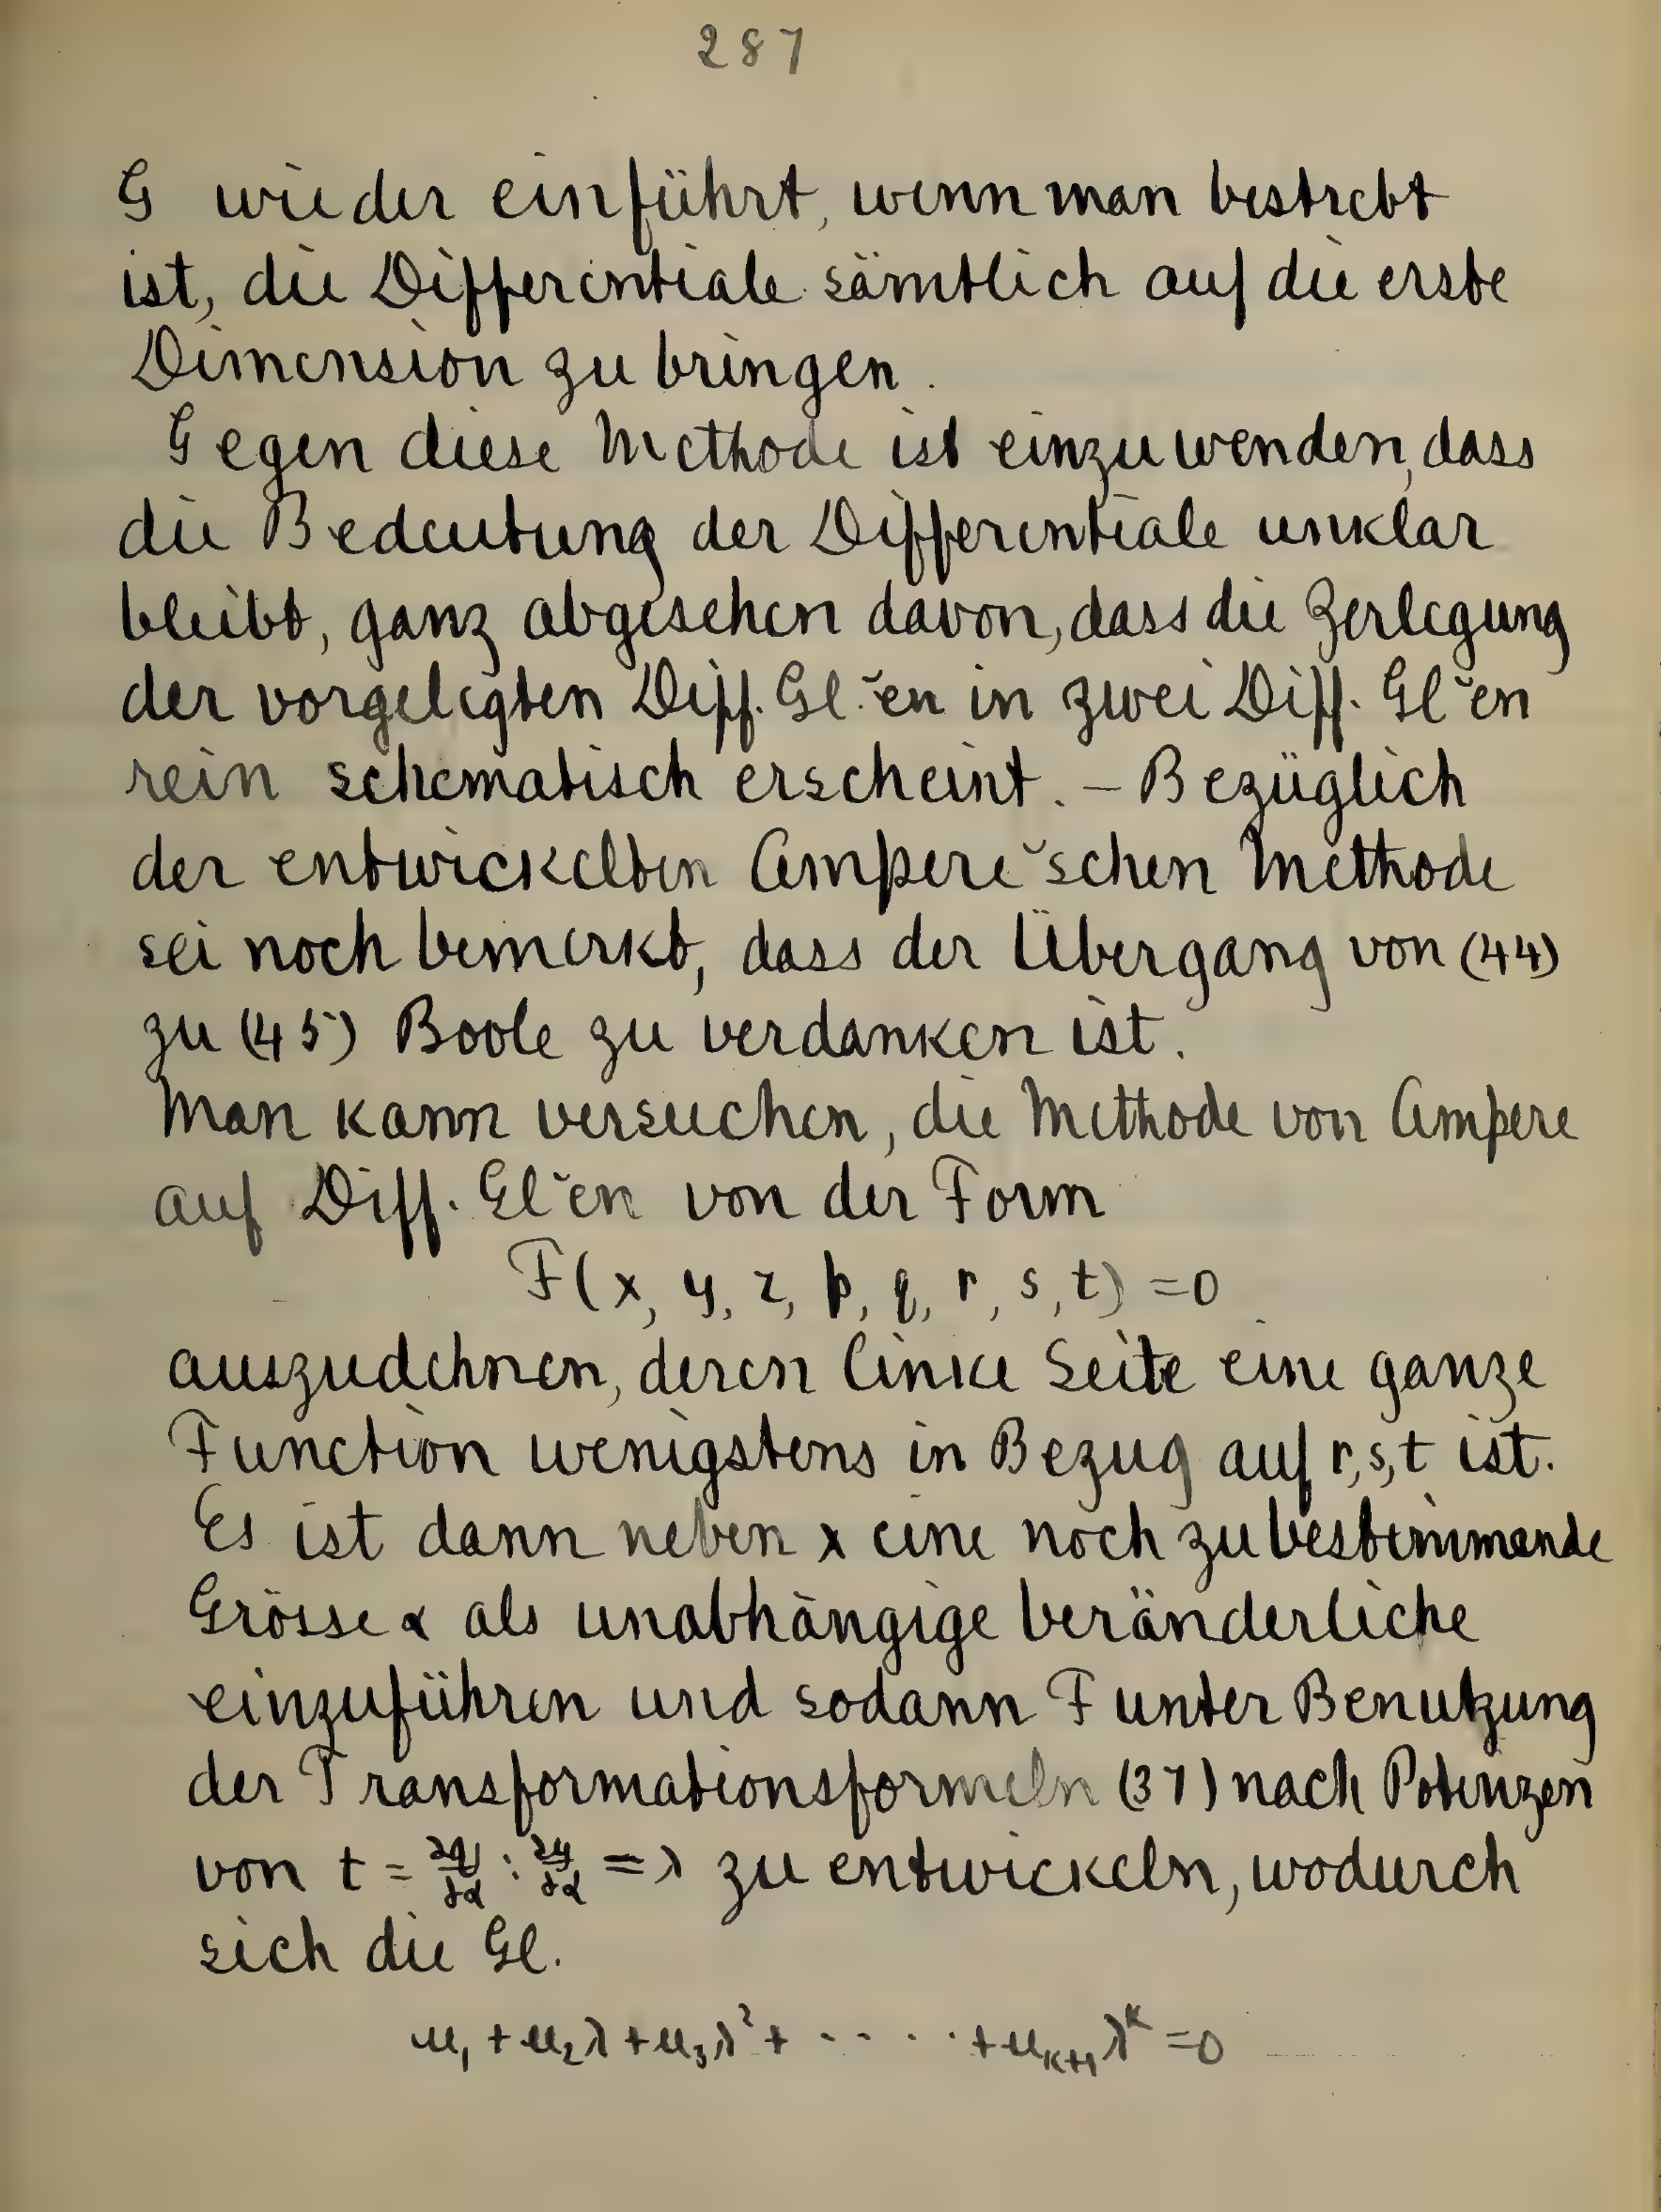 287
G wieder einführt, wenn man bestrebt
ist, die Differentiale sämtlich auf die erste
Dimension zu bringen.
Gegen diese Methode ist einzuwenden, dass
die Bedeutung der Differentiale unklar
bleibt, ganz abgesehen davon, dass die Zerlegung
der vorgelegten Diff. Gl˘en in zwei Diff. Gl˘en
rein schematisch erscheint. – Bezüglich
der entwickelten Ampere˘schen Methode
sei noch bemerkt, dass der Übergang von (44)
zu (45) Boole zu verdanken ist.
Man kann versuchen, die Methode von Ampere
auf Diff. Gl˘en von der Form
F(x, y, z, p, q, r, s, t) = 0
auszudehnen, deren linke Seite eine ganze
Function wenigstens in Bezug auf r, s, t ist.
Es ist dann neben x eine noch zu bestimmende
Grösse α als unabhängige veränderliche
einzuführen und sodann F unter Benutzung
der Transformationsformeln (37) nach Potenzen
von t = ∂q/∂α : ∂y/∂α = λ zu entwickeln, wodurch
sich die Gl.
μ₁ + μ₂λ + μ₃λ² + · · · · · + μₖ₊₁λᵏ = 0